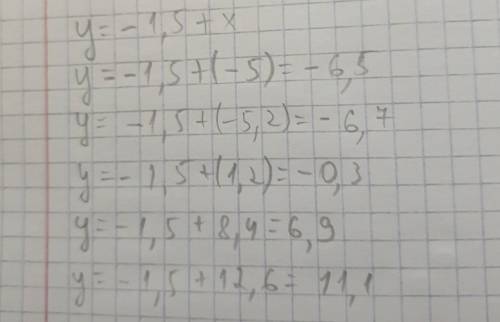 y=-1,5+x
y=-1,5+(-5)=-6,5
y=-1,5+(-5,2)=-6,7
y=-1,5+(1,2)=-0,3
y=-1,5+8,4=6,9
y=-1,5+12,6=11,1